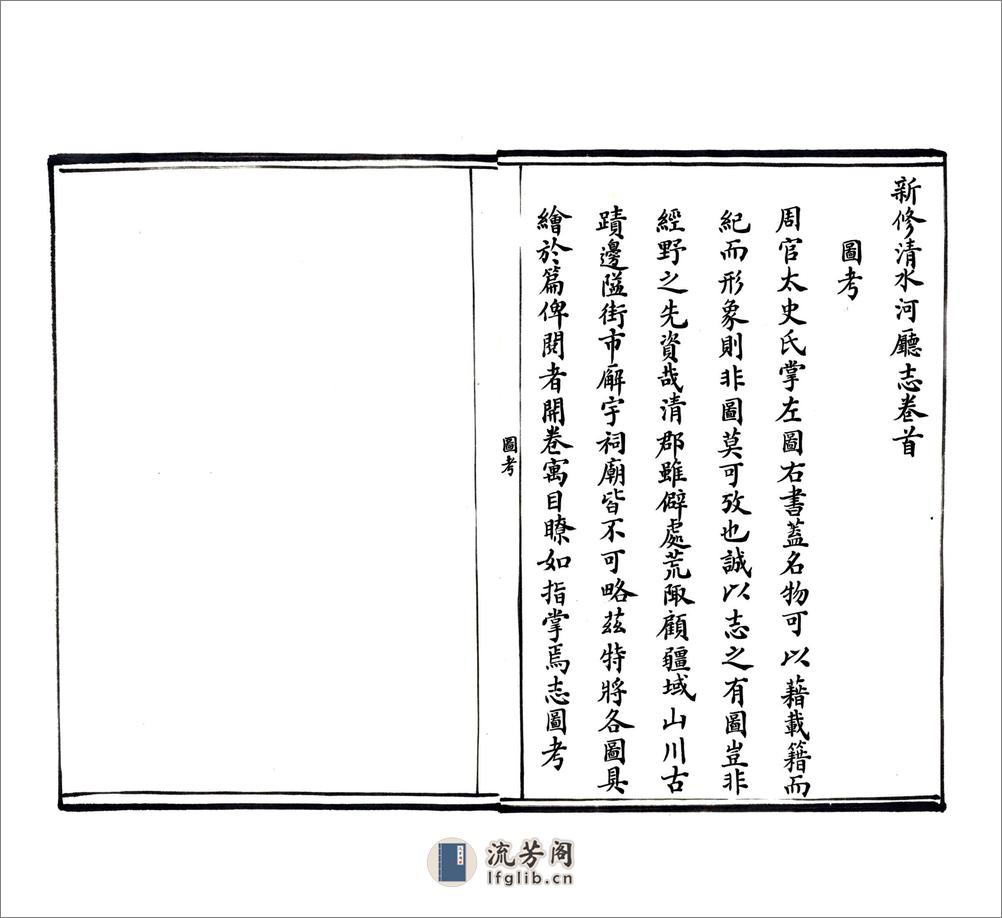 新修清水河廳志卷首
圖考
周官太史氏掌左圖右書蓋名物可以藉載籍而
紀而形象則非圖莫可攷也誠以志之有圖豈非
經野之先資哉清郡雖僻處荒陬顧疆域山川古
蹟邊隘街市廨宇祠廟皆不可略茲特將各圖具
繪於篇俾閱者開卷寓目瞭如指掌焉志圖考
圖考
流芳阁
lfglib.cn